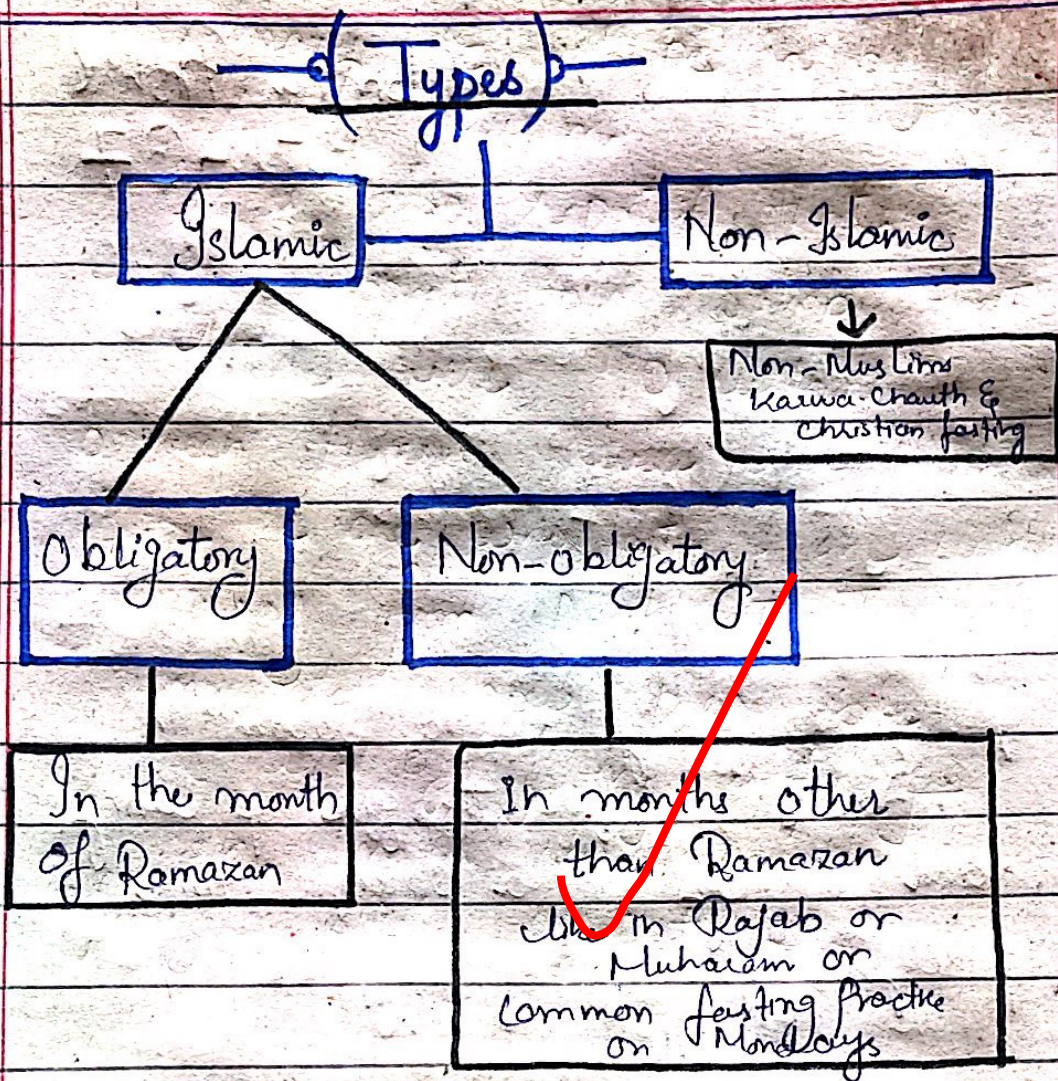 (Types)
Islamic
Non-Islamic
Non-Muslims
Karwa-Chauth &
Christian fasting
Obligatory
Non-obligatory
In the month
of Ramazan
In months other
than Ramazan
like in Rajab or
Muharam or
common fasting practice
on Mondays